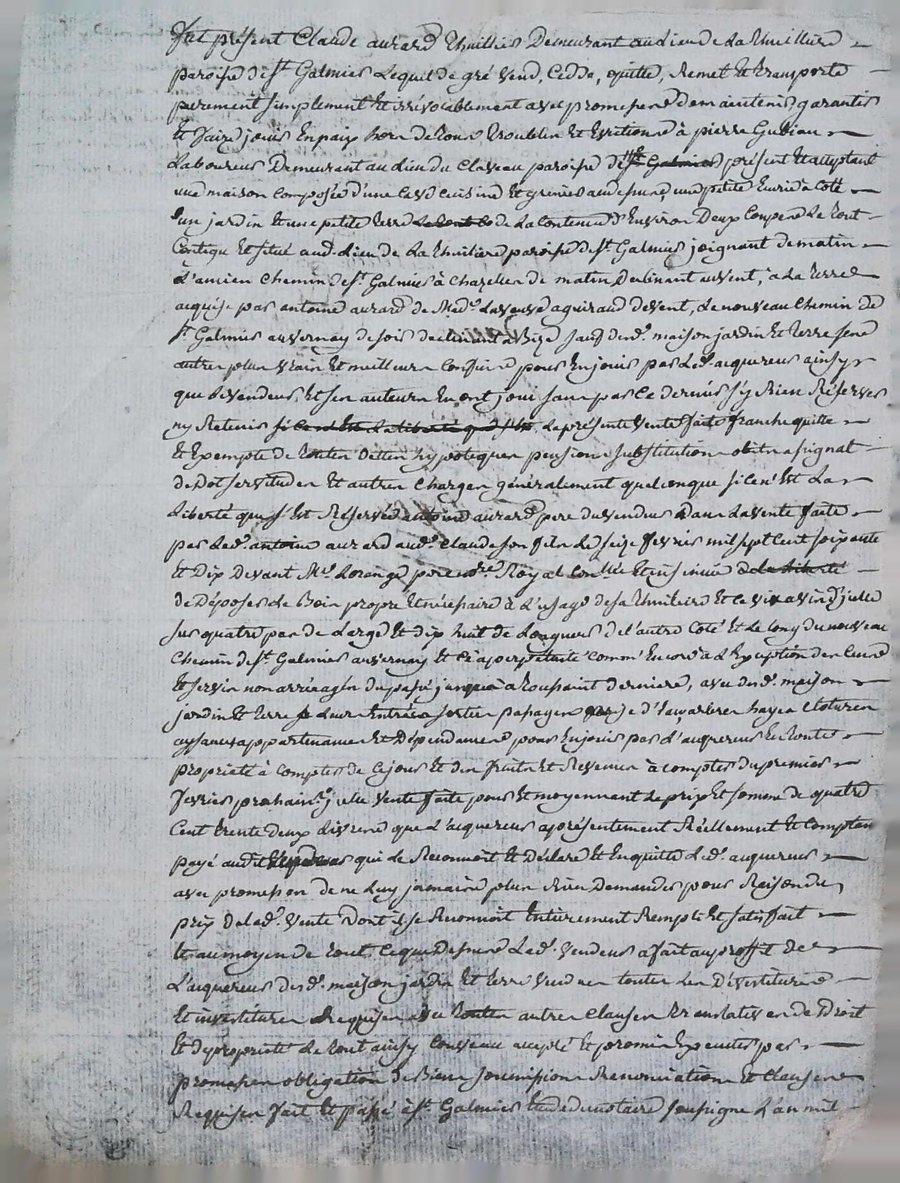 fut présent Claude aurard thuillier Demeurant audieu de La thuilliere
paroisse de st Galmier Lequel de gré vend, Cedde, quitte, Remet Et transporte
purement simplement Et irrévocablement avec promesse de maintenir garantir
Et faire jouir En paix hors de tous troubles Et Evictions à pierre
Laboureur Demeurant au lieu du Claveau paroisse de st Galmier présent Et acceptant
une maison composée d'une Cave cuisine Et grenier audessus, une petite Ecurie à Coté
un jardin Et une petite terre de La Contenue d'Environ Deux Coupes Le tout
Contigu Et situé aud. lieu de La thuiliere paroisse de st Galmier joignant de matin
L'ancien chemin de st Galmier à Chazelles de matin Declinant au vent, à La terre
acquise par antoine aurard de Made La veuve de vent, Le nouveau chemin de
st Galmier au vernay de soir declinant à Bize sauf desd. maison jardin Et terre ses
autres plus vrais Et meilleurs Confins pour En jouir par Led. acquereur ainsy
que Le vendeur, Et ses auteurs En ont joui sans par ce dernier s'y Rien Réserver
ny Retenir La présente vente faite franche quitte
Et Exempte de toutes dettes hypoteques pensions substitutions
de Dot servitudes Et autres charges généralement quelconque si ce n'Est La
Liberté que s'Est Réservé antoine aurard pere du vendeur dans La vente faite
par Led. antoine aurard aud. Claude son fils Le seize fevrier mil sept cent soixante
Et Dix Devant Me Lorange pere nore Royal Conlé Et insinué
de Déposer Le Bois propre Et nécessaire à L'usage de sa thuiliere Et ce vis a vis d'icelle
sur quatre pas de Large Et dix huit de Longueur de l'autre Coté Et Le long du nouveau
chemin de st Galmier au vernay Et ce à perpétuité comm' Encore à L'Exception des Cens
Et servis non arréragés du passé jusques à toussaint derniere, avec desd. maison
jardin Et terre Leurs Entrées sorties passages prise d'Eau, arbres hayes clotures
aysances appartenances Et Dépendances pour En jouir par L'acquereur En toute
proprieté à compter de ce jour Et des fruits Et Revenus à compter du premier
fevrier prochain, icelle vente faite pour Et moyennant Le prix Et somme de quatre
Cent trente deux Livres que L'acquereur a présentement Réellement Et Comptant
payé audit qui Le Reconnoit Et Déclare Et En quitte Led. acquereur
avec promesse de ne Luy jamais plus Rien Demander pour Raison du
prix de lad. vente Dont il se Reconnoit Entièrement Rempli Et satisfait
Et au moyen de tout ce que Dessus Led. vendeur a fait au proffit de
L'acquereur desd. maison jardin Et terre vendues toutes Les Dévestitures
Et investitures Requises Et toutes autres Clauses translatives de Droit
Et de proprieté Le tout ainsy Convenu accepté Et promis Executer par
promesses obligation de Biens soumissions Renonciations Et Clauses
Requises fait Et passé à st Galmier Etude du notaire soussigné L'an mil